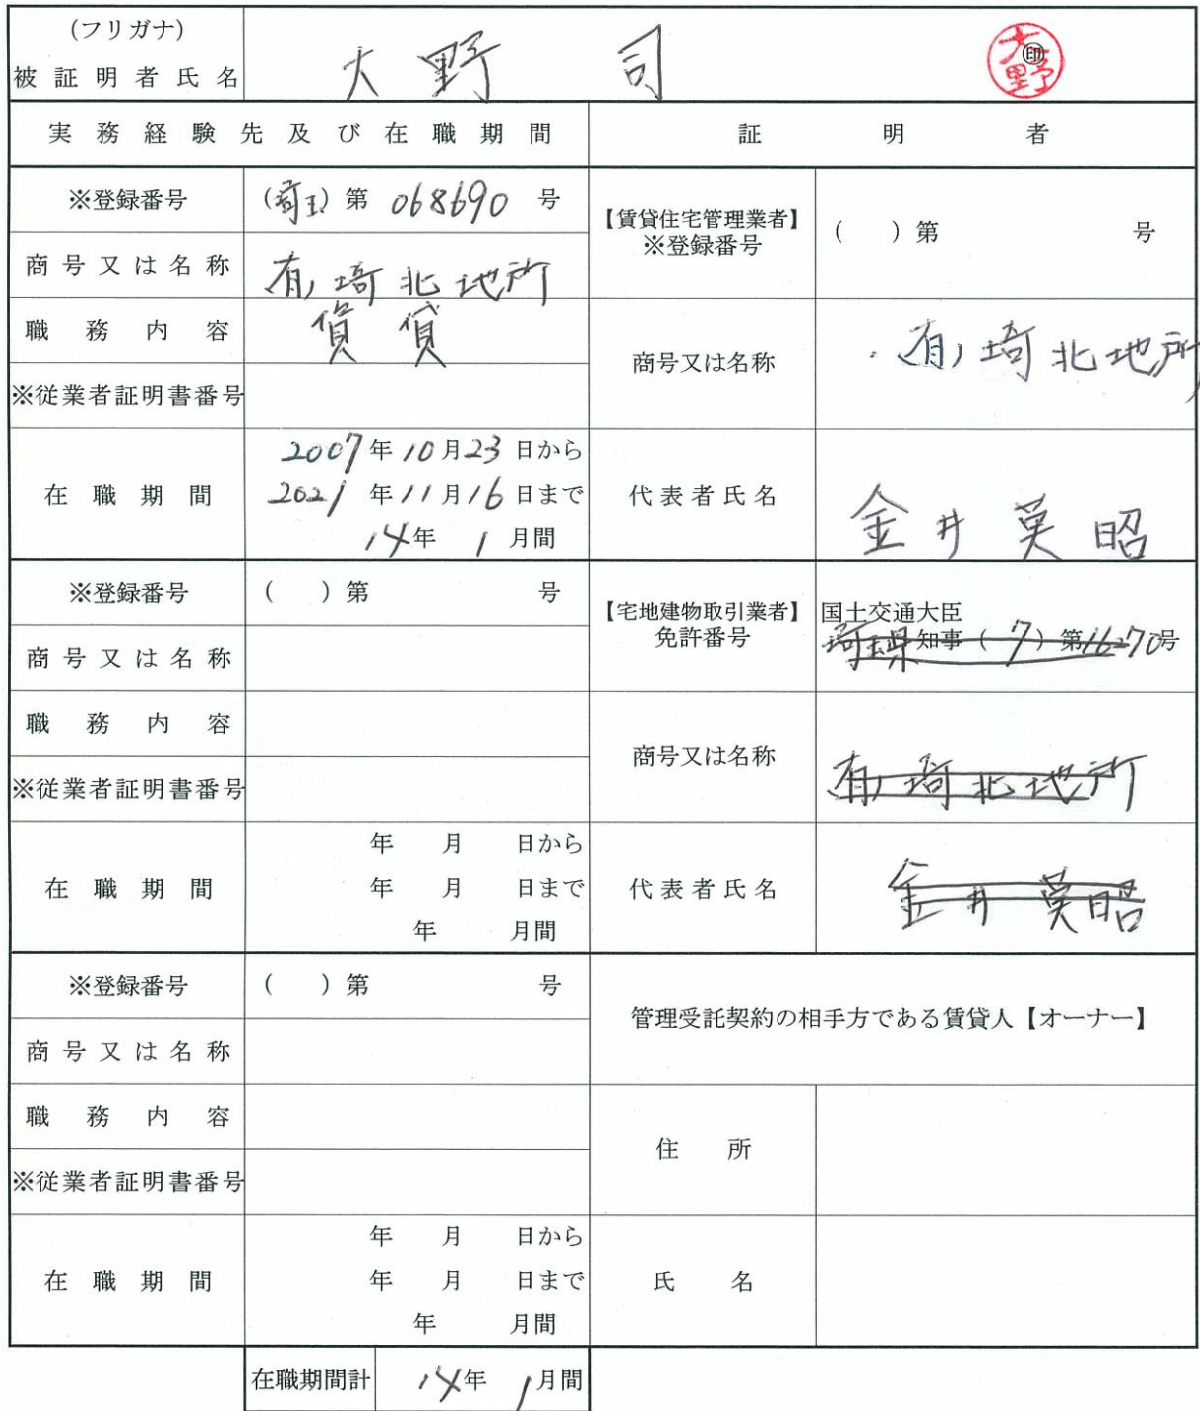 (フリガナ)
被証明者氏名 大野 司 ㊞ 大野
実務経験先及び在職期間 証明者
※登録番号 (埼玉)第 068690 号
【賃貸住宅管理業者】
※登録番号 ( )第 号
商号又は名称 (有)埼北地所
職務内容 賃貸
商号又は名称 (有)埼北地所
※従業者証明書番号
在職期間 2007年10月23日から
2021年11月16日まで
14年 1月間
代表者氏名 金井 英昭
※登録番号 ( )第 号
【宅地建物取引業者】
免許番号
国土交通大臣
埼玉県知事(7)第16270号
商号又は名称
職務内容
商号又は名称 (有)埼北地所
※従業者証明書番号
在職期間 年 月 日から
年 月 日まで
年 月間
代表者氏名 金井 英昭
※登録番号 ( )第 号
管理受託契約の相手方である賃貸人【オーナー】
商号又は名称
職務内容
住所
※従業者証明書番号
在職期間 年 月 日から
年 月 日まで
年 月間
氏名
在職期間計 14年 1月間